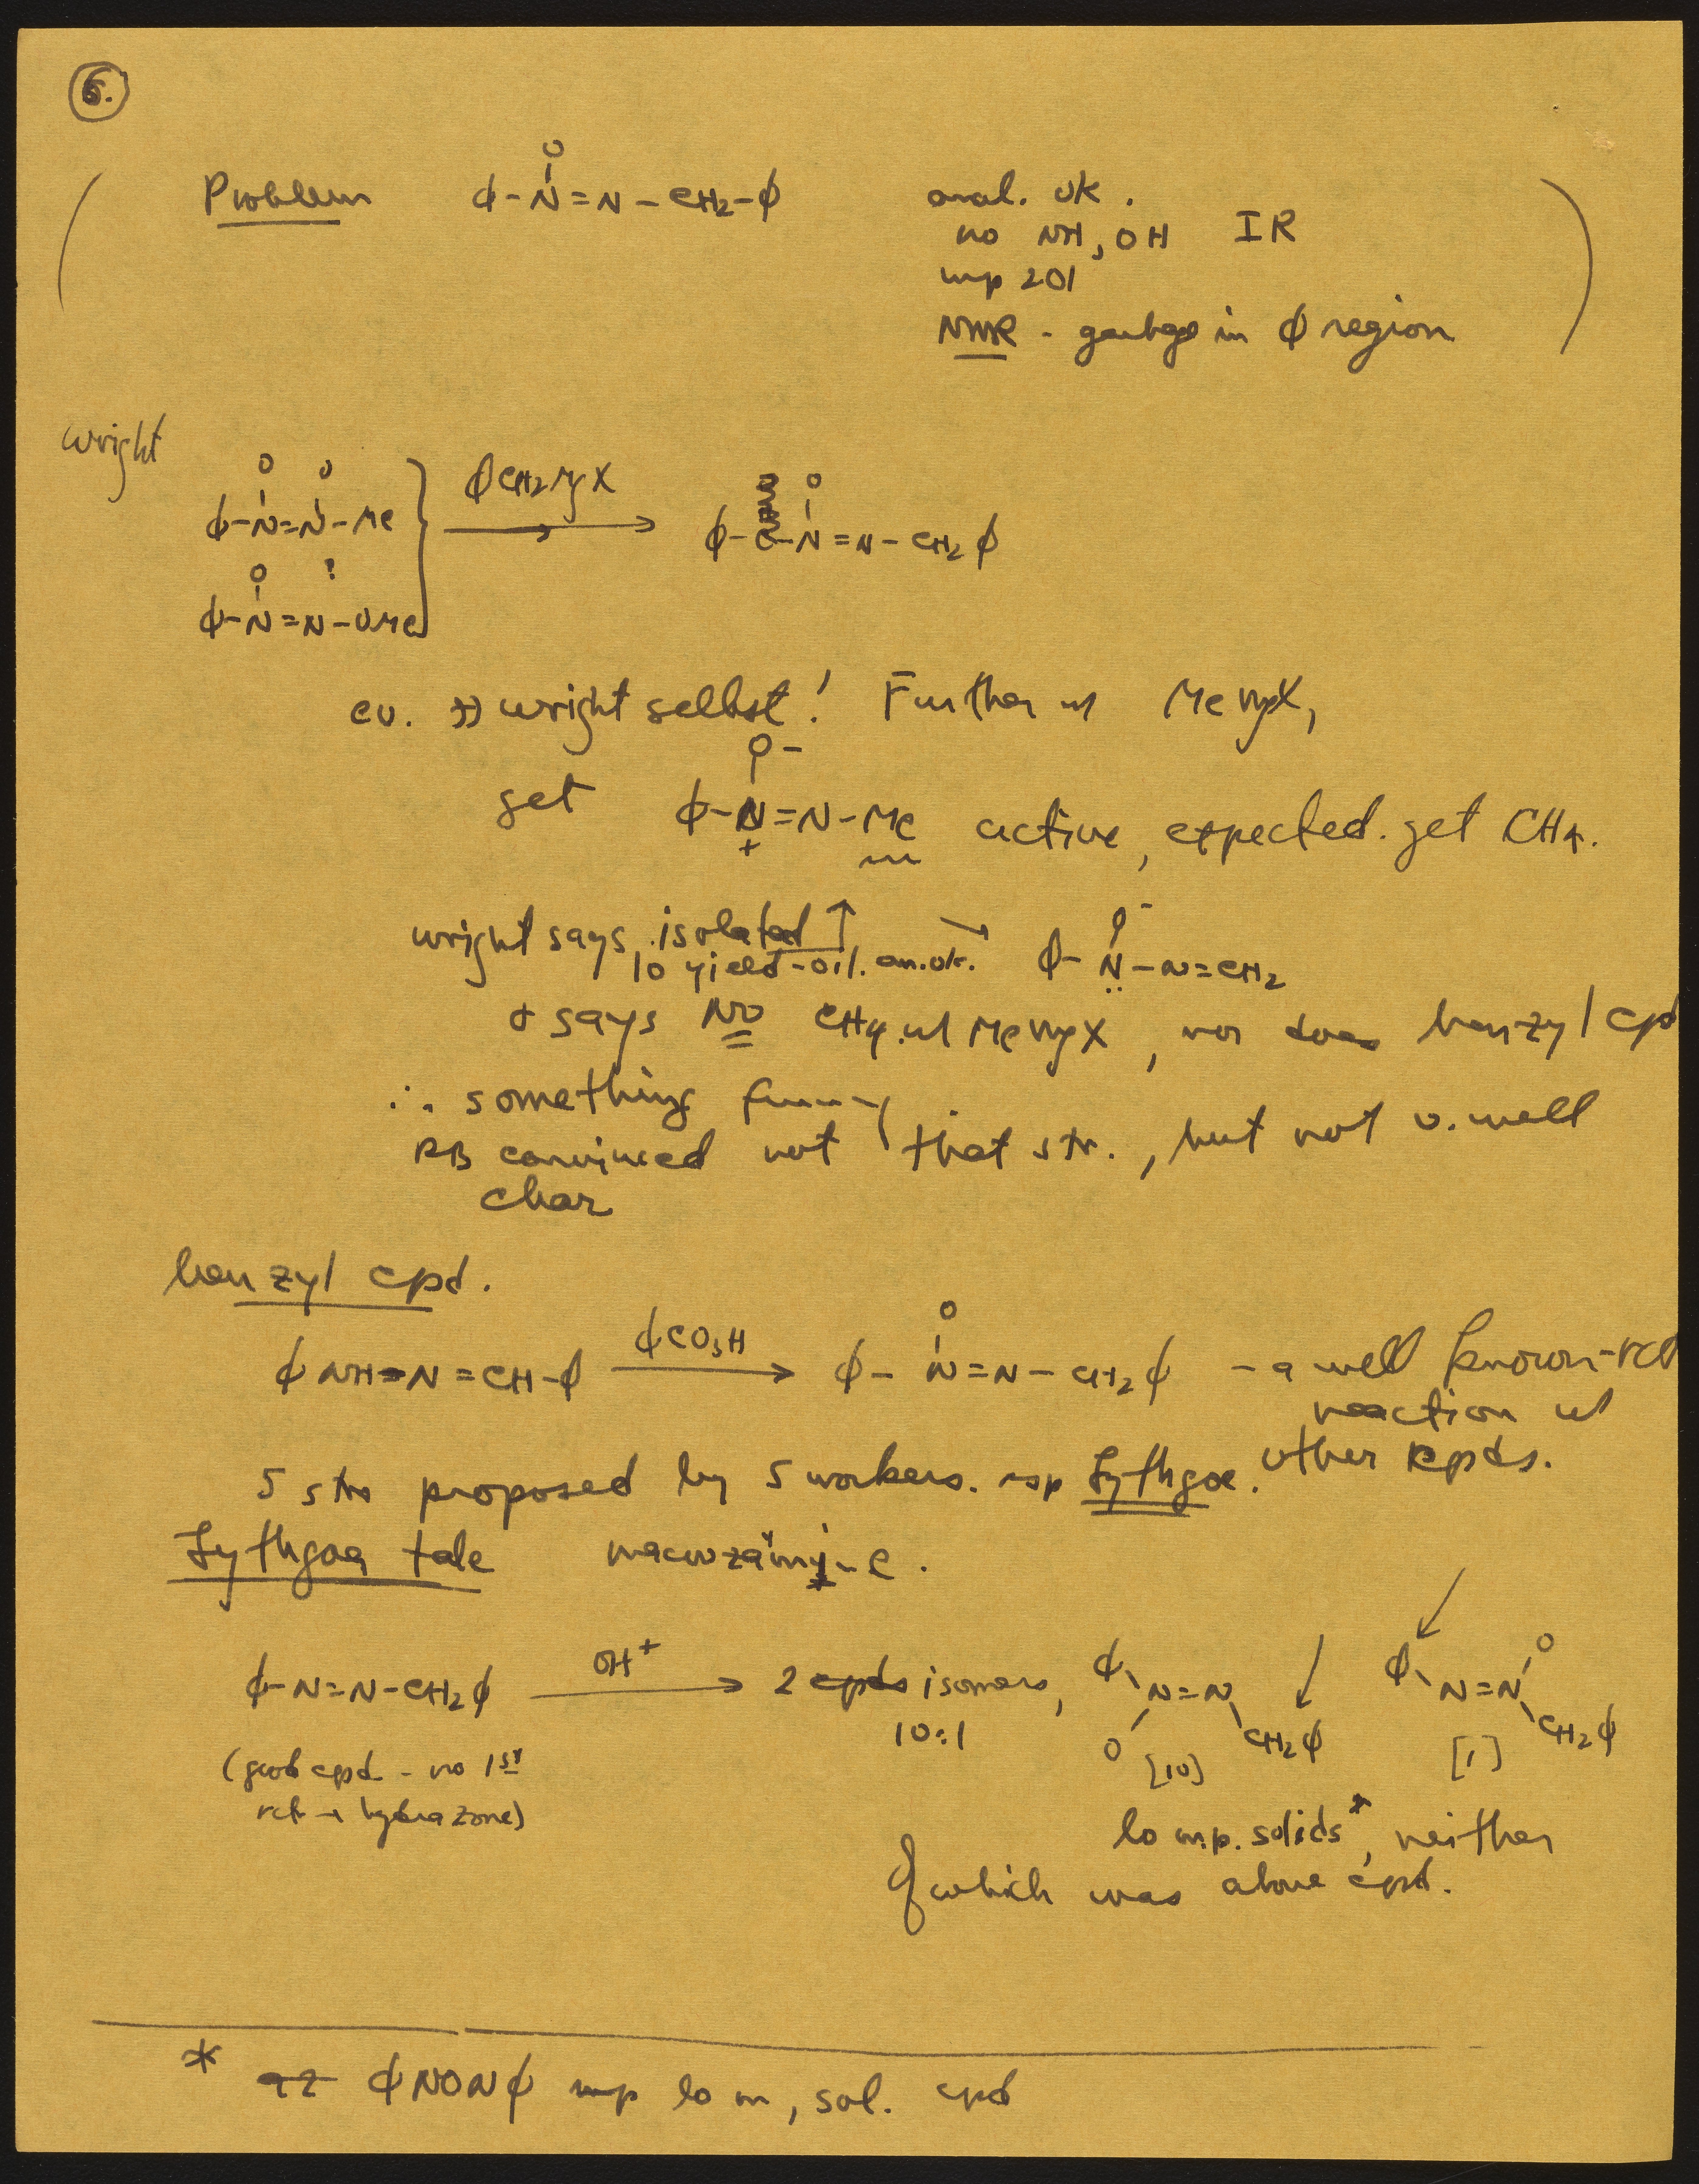 6.
Problem ϕ-N(O)=N-CH2-ϕ anal. ok.
no NH, OH IR
mp 201
NMR - garbage in ϕ region
Wright
ϕ-N(O)=N(O)-Me
ϕCH2MgX
ϕ-N(O)=N-CH2ϕ
ϕ-N(O)=N-OMe
!
ev. wright selbst! Further w MeMgX,
get ϕ-N(O-)(+)=N-Me active, expected. get CH4.
wright says isolated ↑
10 yield-oil. an.ok. → ϕ-N(O-)-N=CH2
+ says NO CH4 w/ MeMgX, nor does benzyl cpd
∴ something funny
RB convinced not that str., but not v. well
char
benzyl cpd.
ϕNH-N=CH-ϕ ϕCO3H → ϕ-N(O)=N-CH2ϕ - a well known rct
reaction w
other cpds.
5 strs proposed by 5 workers. esp Lythgoe.
Lythgoe tale macrozamin.
ϕ-N=N-CH2ϕ OH+ → 2 cpds isomers, ϕ-N(O)=N-CH2ϕ ϕ-N=N(O)-CH2ϕ
10:1 [10] [1]
(good cpd - no 1st
rct → hydrazone)
lo m.p. solids*, neither
of which was above cpd.
* ϕNONϕ mp lo m, sol. cpd